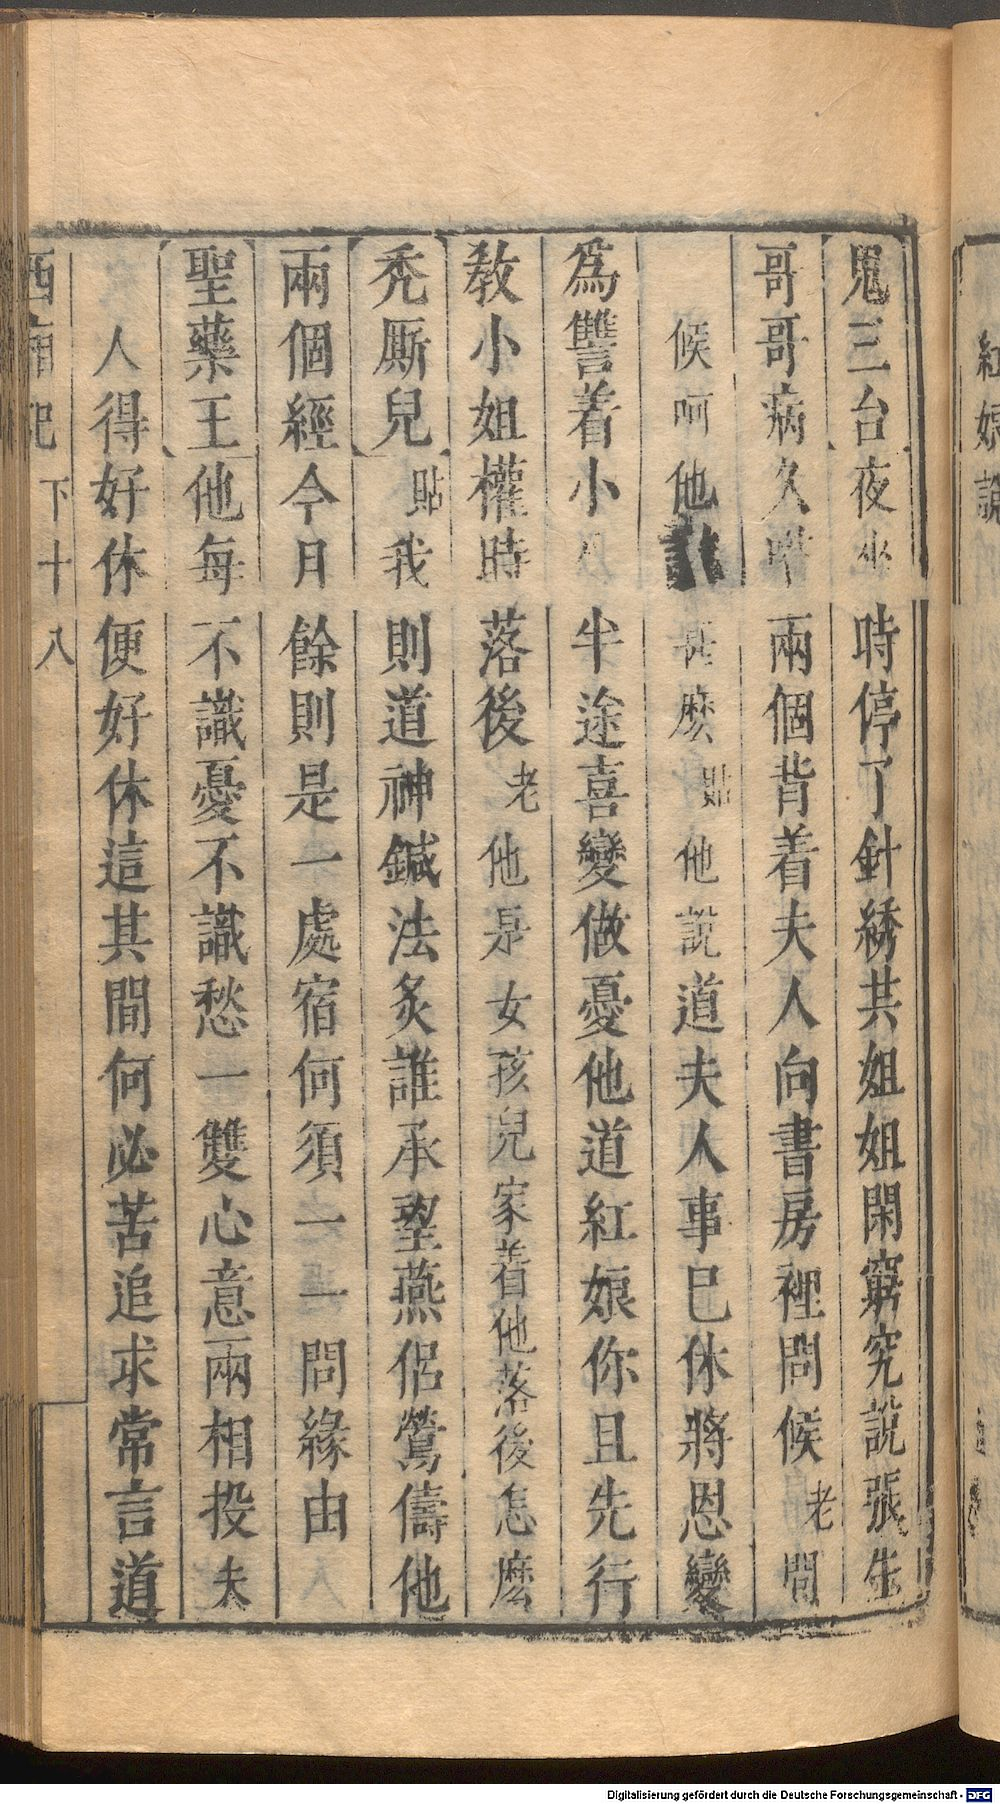 紅娘說
鬼三台夜坐時停了針綉共姐姐閑窮究說張生
哥哥病久咱兩個背着夫人向書房裡問候老問
候呵他說甚麽貼他說道夫人事已休將恩變
爲讐着小生半途喜變做憂他道紅娘你且先行
教小姐權時落後老他是女孩兒家着他落後怎麽
禿厮兒貼我則道神鍼法炙誰承望燕侶鶯儔他
兩個經今月餘則是一處宿何須一一問緣由
聖藥王他每不識憂不識愁一雙心意兩相投夫
人得好休便好休這其間何必苦追求常言道
西廂記 下 十八
Digitalisierung gefördert durch die Deutsche Forschungsgemeinschaft - DFG